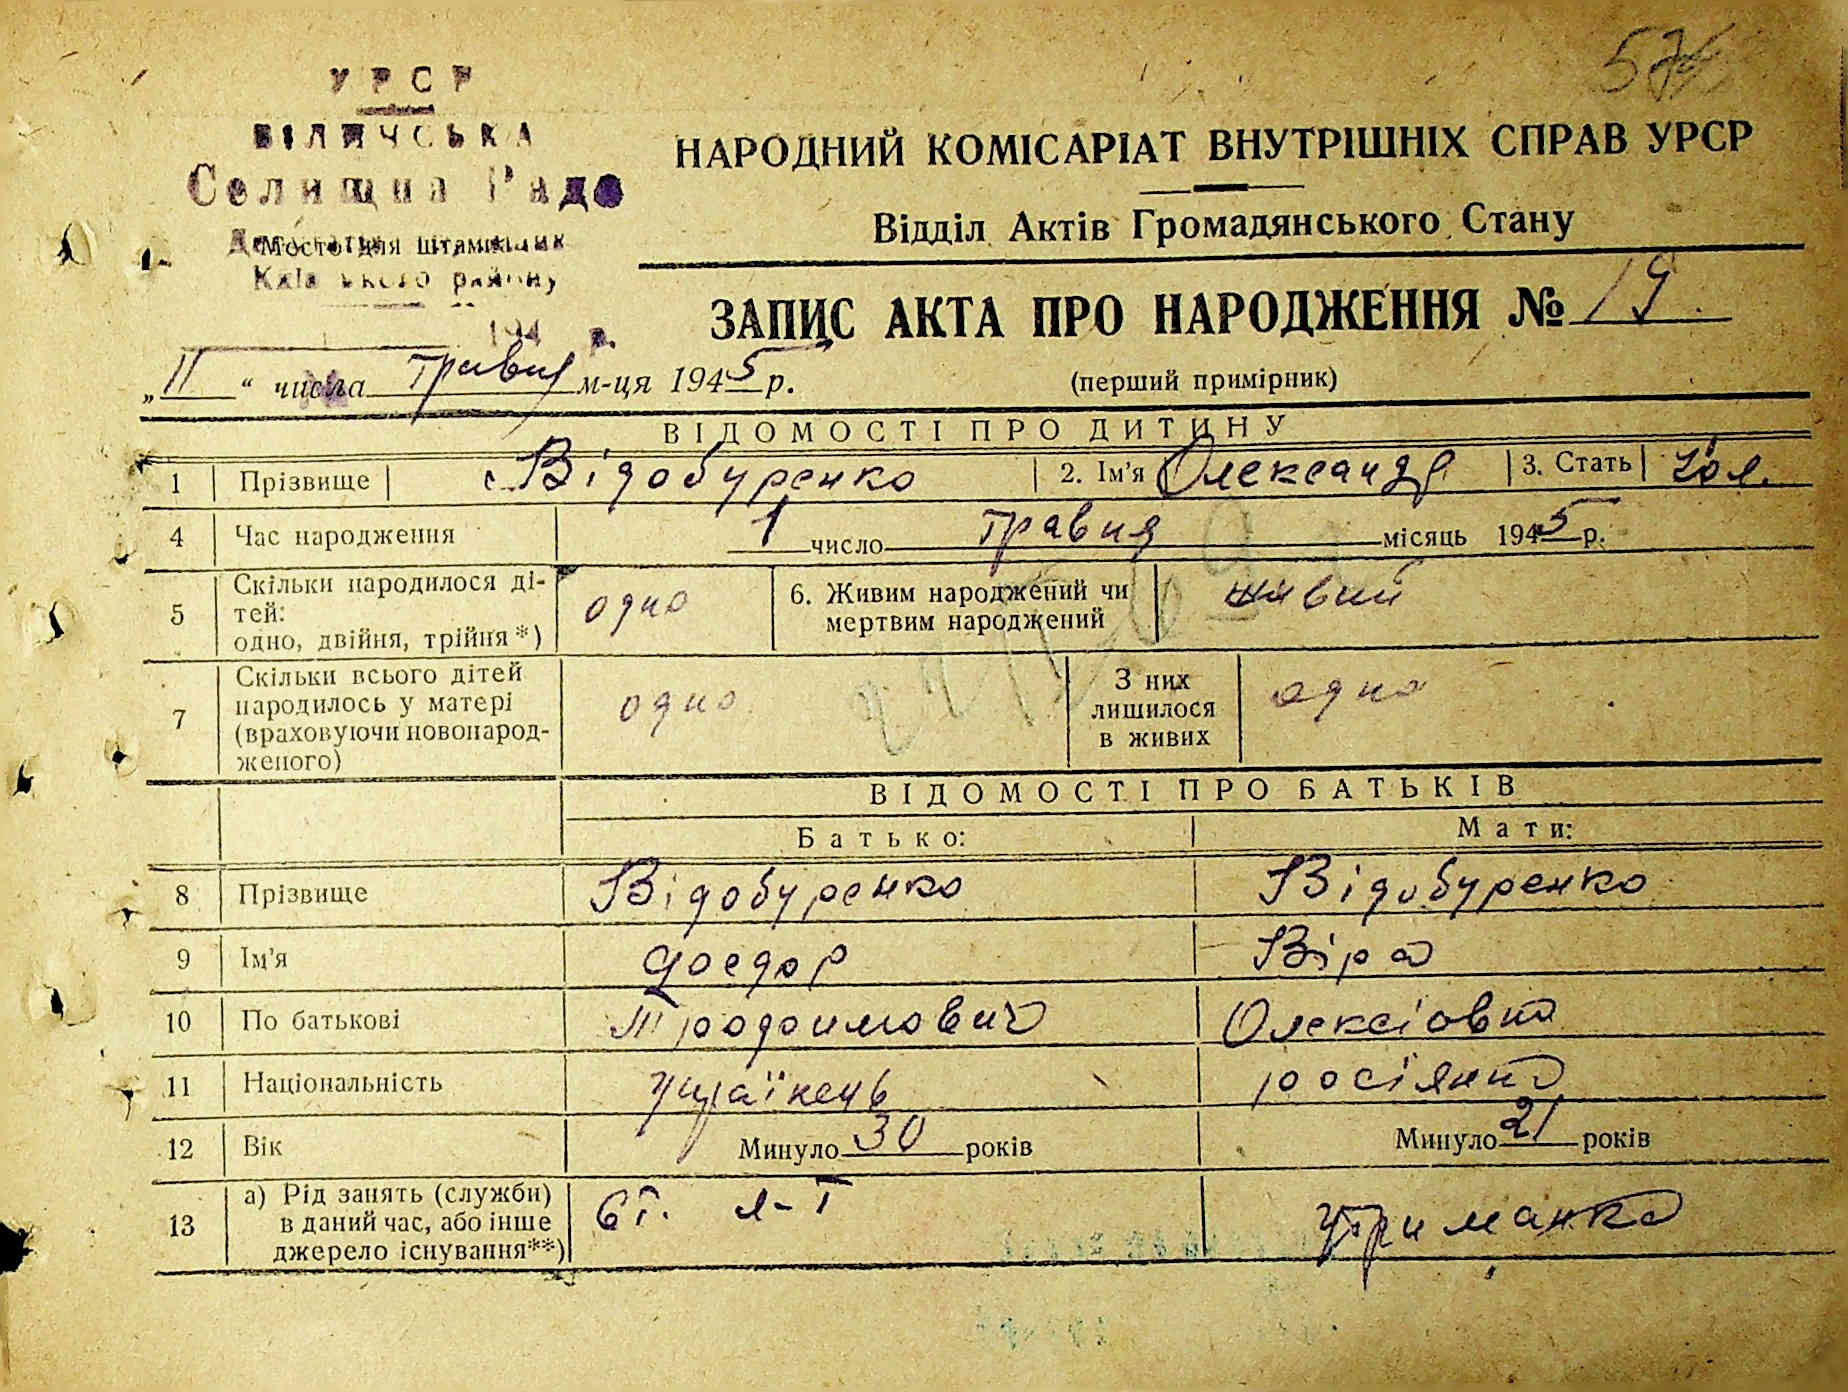 57
УРСР
БІЛИЧСЬКА
Селищна Рада
Місто для штампа
Київського району
194 р.
НАРОДНИЙ КОМІСАРІАТ ВНУТРІШНІХ СПРАВ УРСР
Відділ Актів Громадянського Стану
ЗАПИС АКТА ПРО НАРОДЖЕННЯ № 19.
„11“ числа травня м-ця 1945 р.
(перший примірник)
ВІДОМОСТІ ПРО ДИТИНУ
1 Прізвище Відобуренко 2. Ім'я Олександр 3. Стать чол.
4 Час народження 1 число травня місяць 1945 р.
5 Скільки народилося ді-
тей:
одно, двійня, трійня*) одно 6. Живим народжений чи
мертвим народжений живий
7 Скільки всього дітей
народилось у матері
(враховуючи новонарод-
женого) одно З них
лишилося
в живих одно
ВІДОМОСТІ ПРО БАТЬКІВ
Батько: Мати:
8 Прізвище Відобуренко Відобуренко
9 Ім'я Фоедор Віра
10 По батькові Трофимович Олексіовна
11 Національність Україкець росіянка
12 Вік Минуло 30 років Минуло 21 років
13 а) Рід занять (служби)
в даний час, або інше
джерело існування**) ст. л-т Утриманка